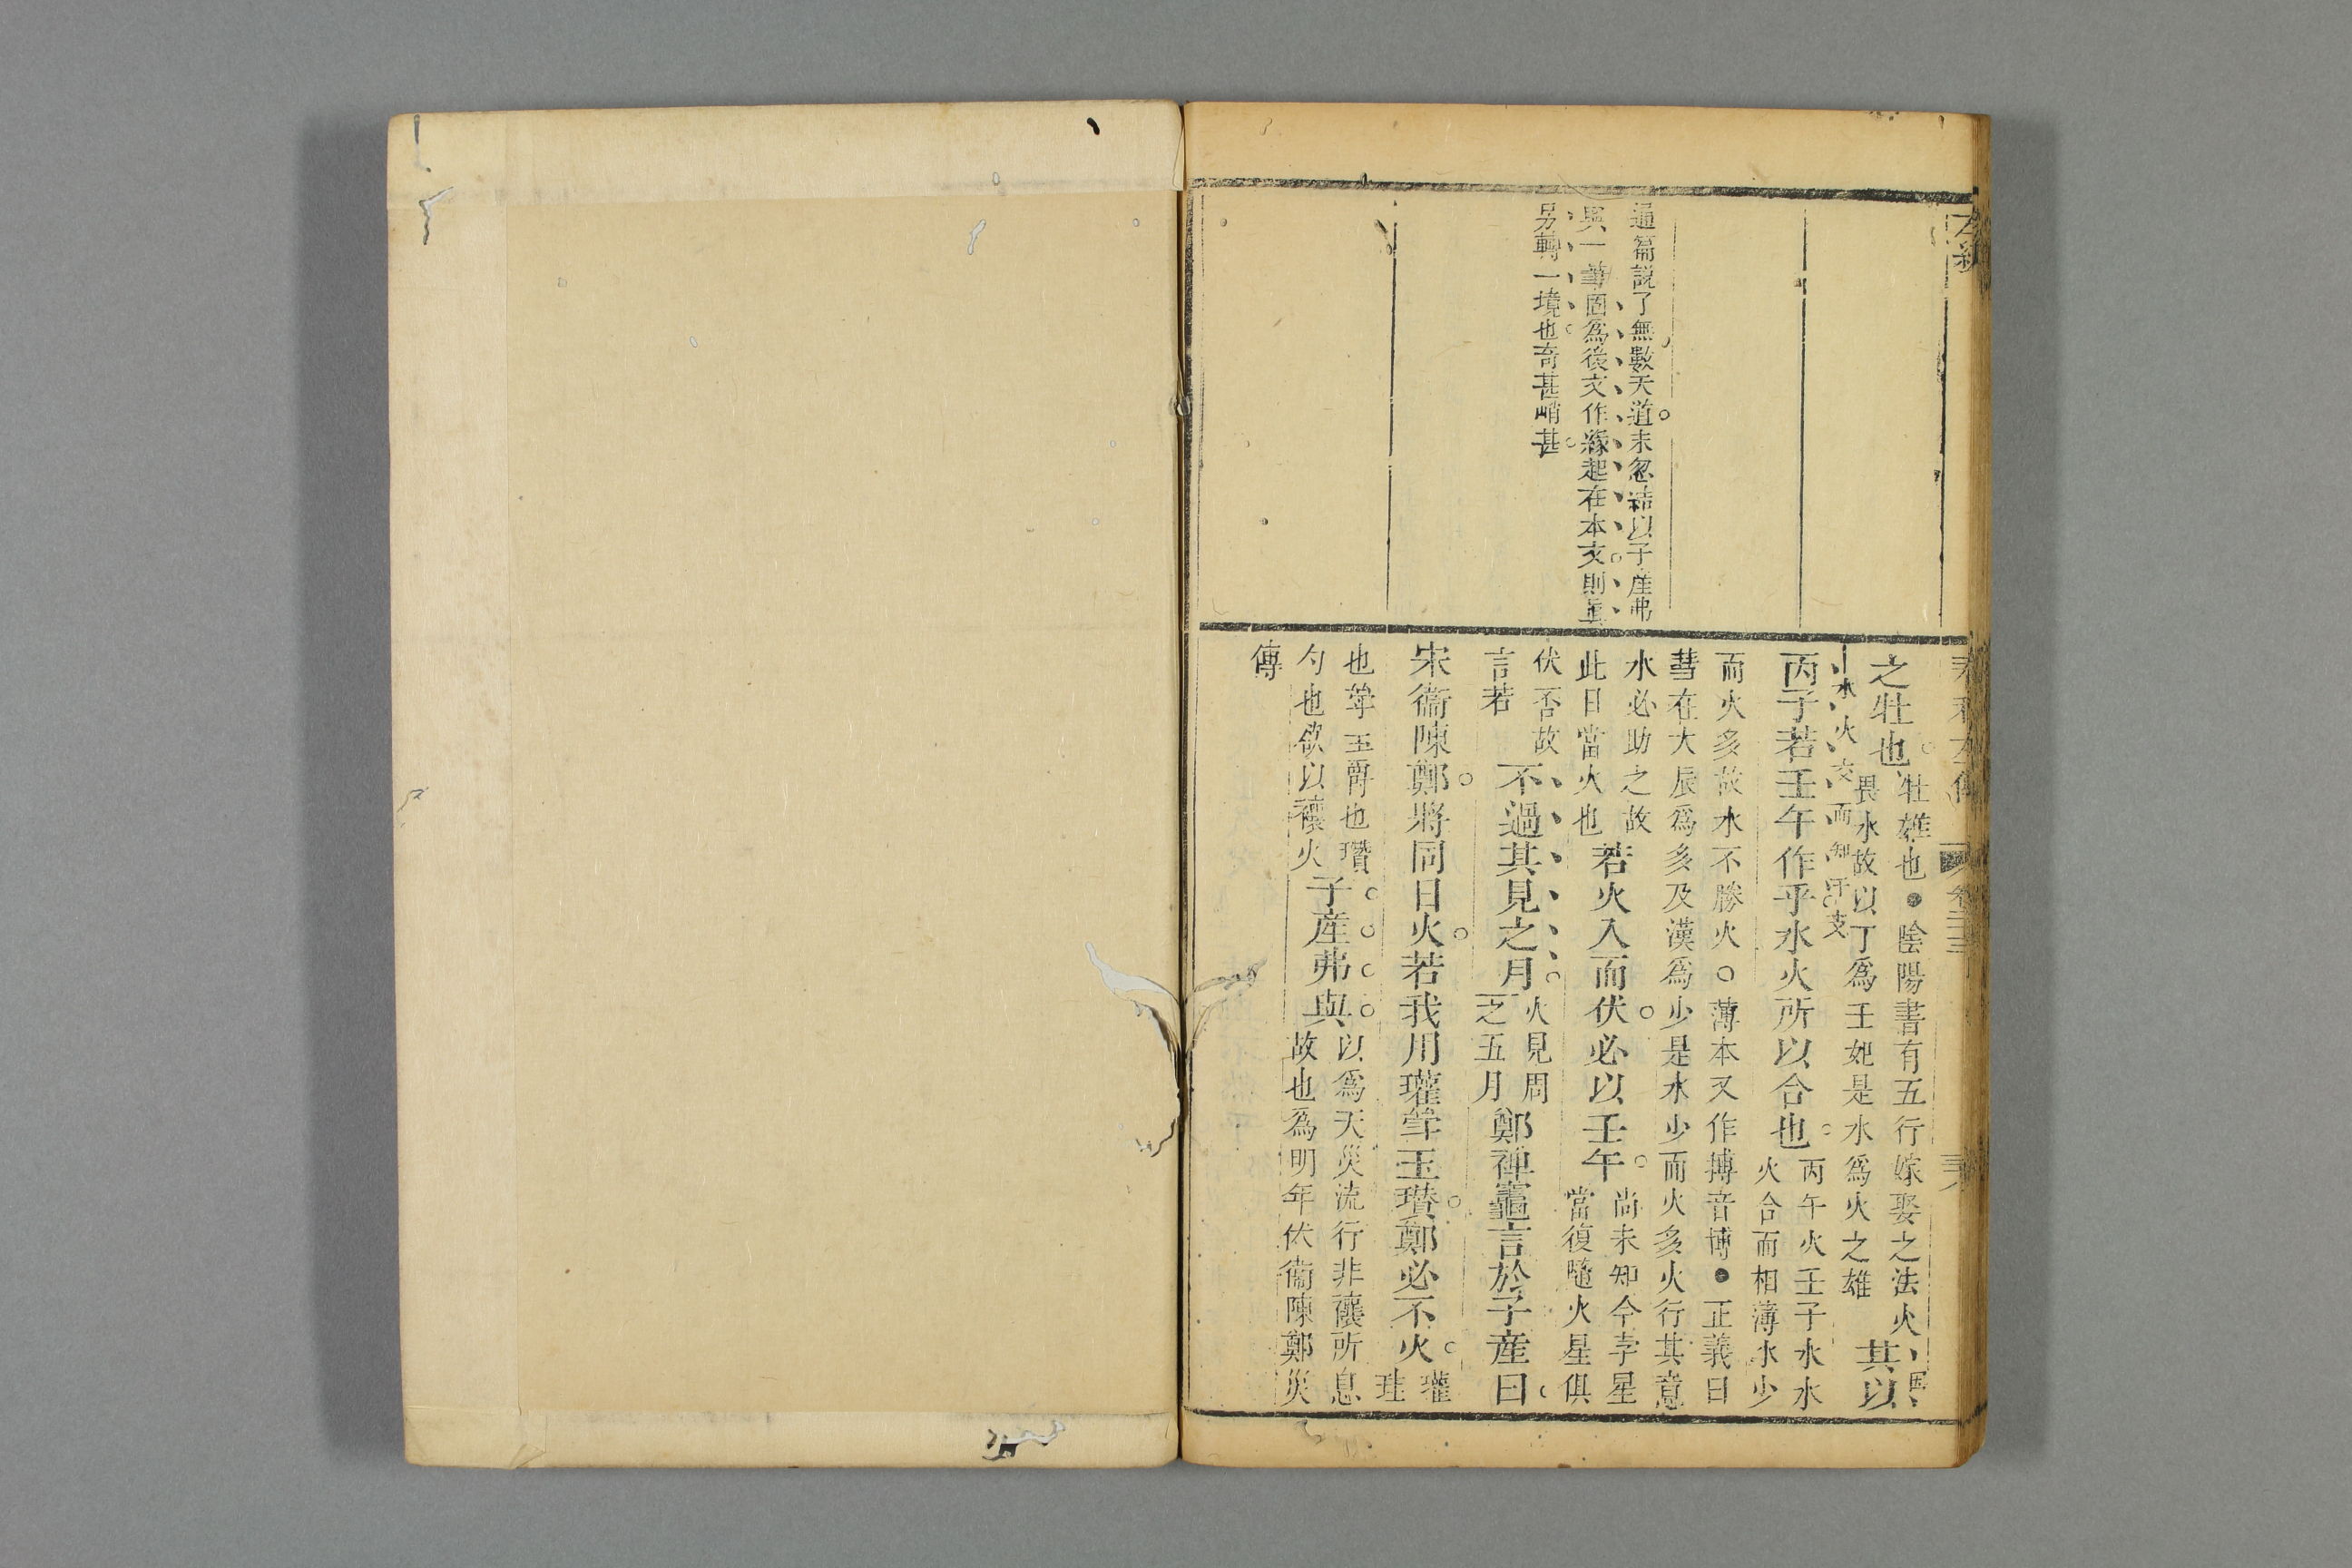 通篇説了無數天道末忽結以子産弗
與一筆固為後文作緣起在本文則
另轉一境也奇甚峭甚
之牡也牡雄也●陰陽書有五行嫁娶之法火
畏水故以丁為壬妃是水為火之雄其以
水火交而知干支
丙子若壬午作乎水火所以合也丙午火壬子水水
火合而相薄水少
而火多故水不勝火○薄本又作搏音博●正義曰
彗在大辰為多及漢為少是水少而火多火行其意
水必助之故
此日當火也若火入而伏必以壬午尚未知今孛星
當復隨火星俱
伏否故
言若不過其見之月火見周
之五月鄭禆竈言於子產曰
宋衞陳鄭將同日火若我用瓘斝玉瓚鄭必不火瓘
珪
也斝玉爵也瓚
勺也欲以禳火子産弗與以為天災流行非禳所息
故也為明年宋衞陳鄭災
傳